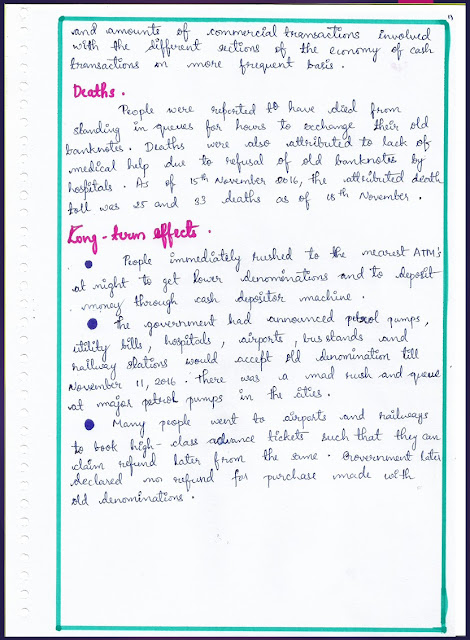 13
and amounts of commercial transactions involved
with the different sections of the economy of cash
transactions on more frequent basis.
Deaths.
People were reported to have died from
standing in queues for hours to exchange their old
banknotes. Deaths were also attributed to lack of
medical help due to refusal of old banknotes by
hospitals. As of 15th November 2016, the attributed death
toll was 25 and 33 deaths as of 18th November.
Long-term effects.
People immediately rushed to the nearest ATM's
at night to get lower denominations and to deposit
money through cash depositor machine.
The government had announced petrol pumps,
utility bills, hospitals, airports, bus stands and
railway stations would accept old denomination till
November 11, 2016. There was a mad rush and queue
at major petrol pumps in the cities.
Many people went to airports and railways
to book high-class advance tickets such that they can
claim refund later from the same. Government later
declared no refund for purchase made with
old denominations.